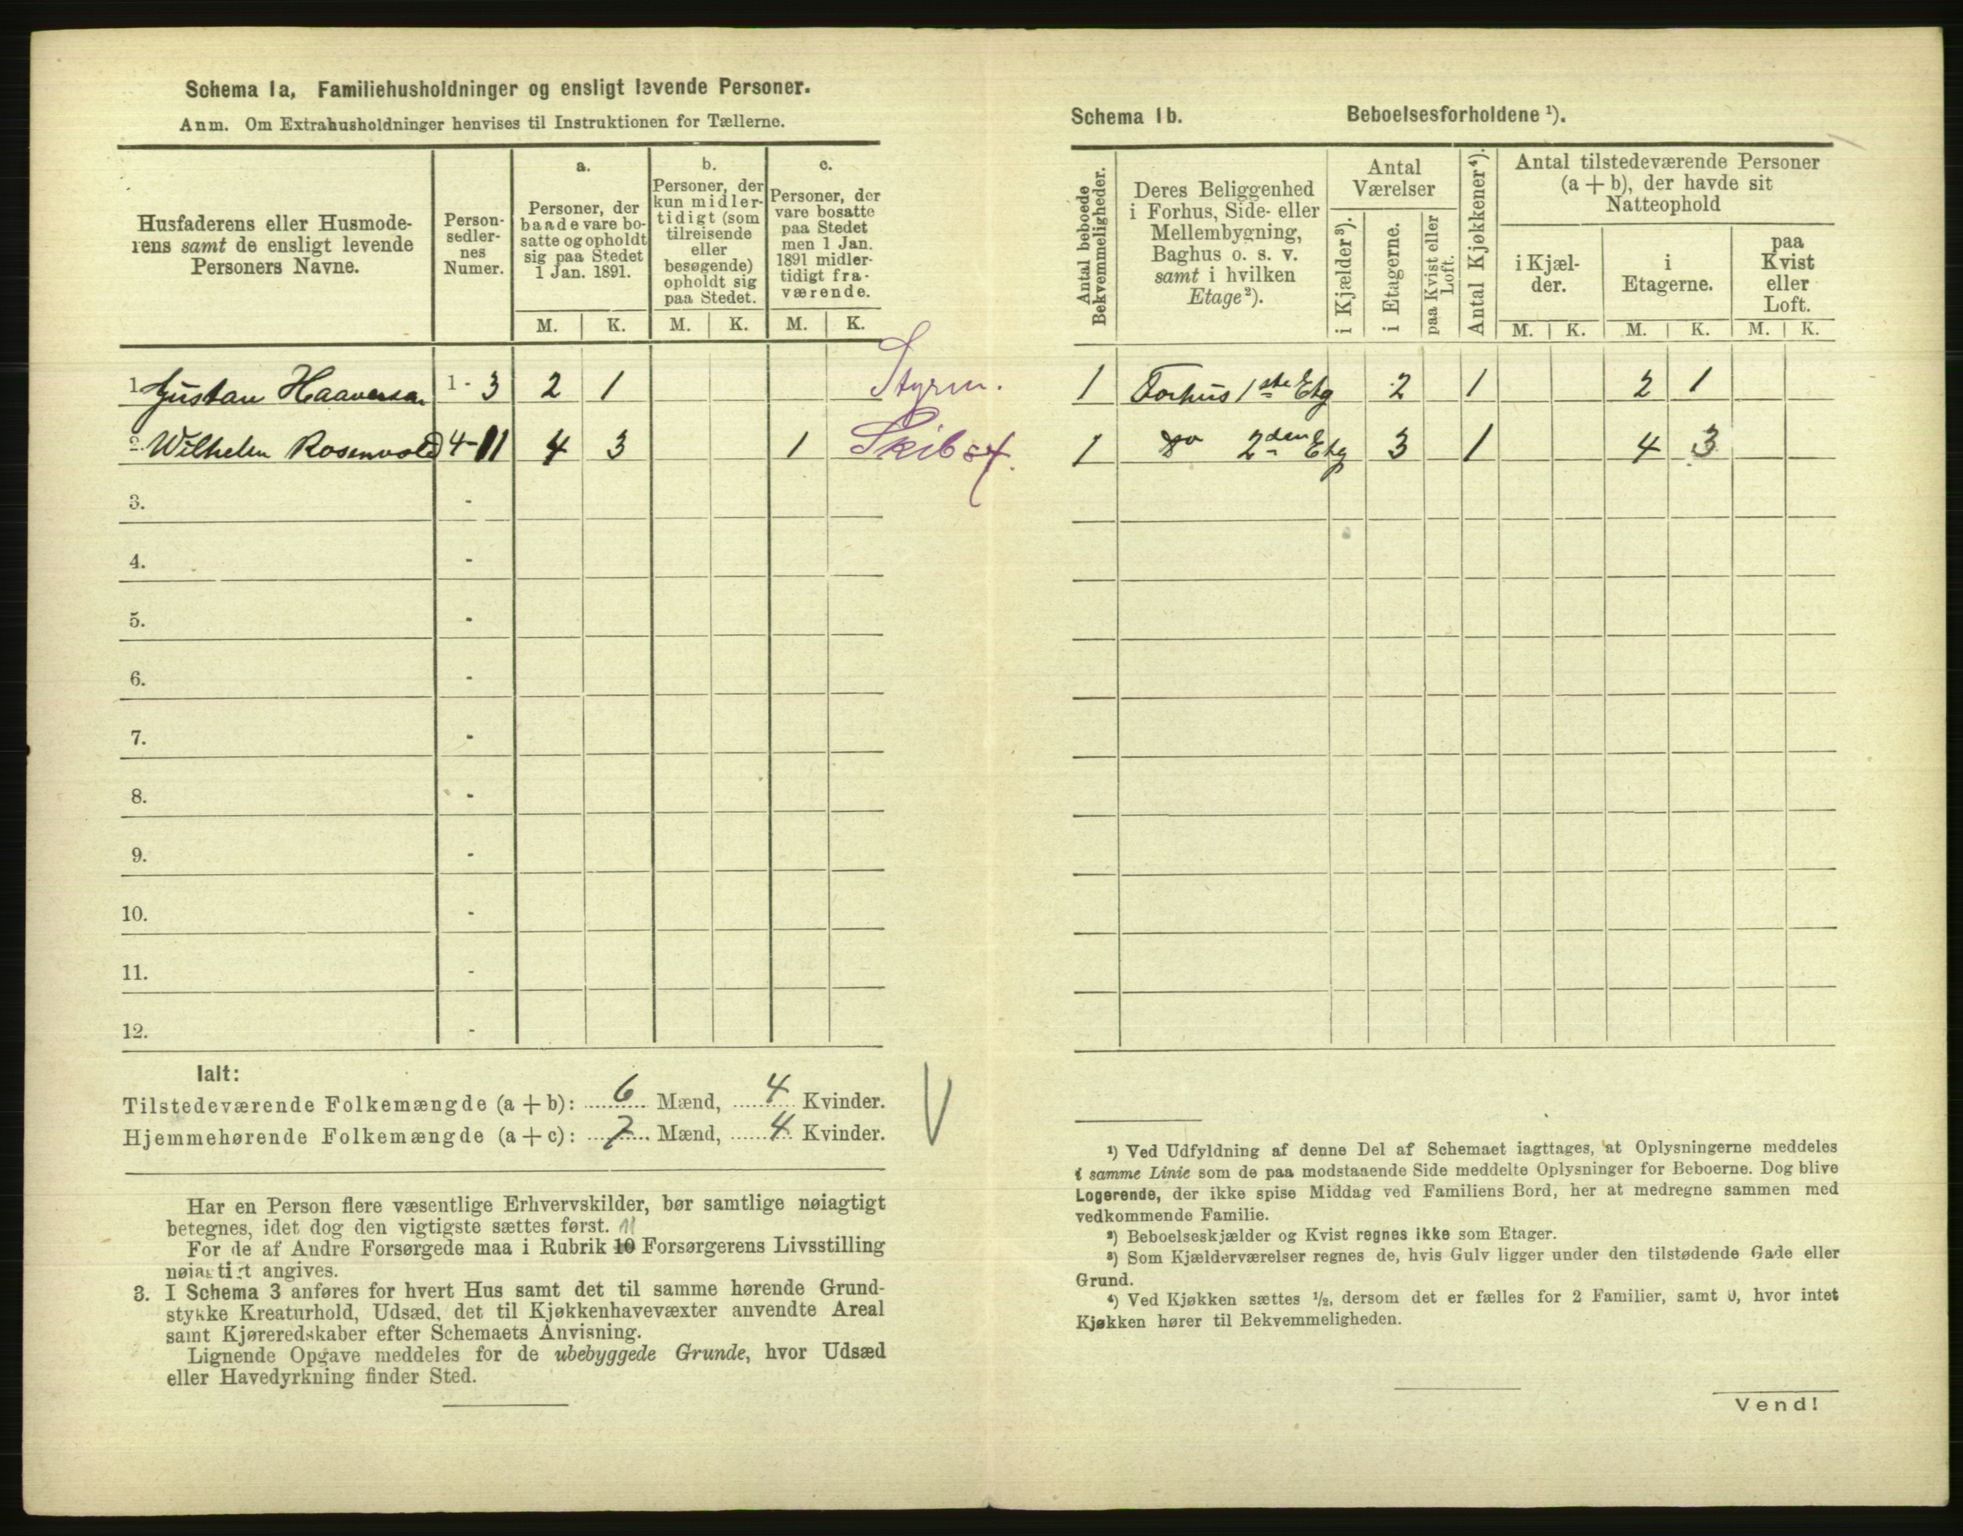 Schema 1a, Familiehusholdninger og ensligt levende Personer.
Anm. Om Extrahusholdninger henvises til Instruktionen for Tællerne.
Husfaderens eller Husmode-
rens samt de ensligt levende
Personers Navne.
Person-
sedler-
nes
Numer.
a.
Personer, der
baade vare bo-
satte og opholdt
sig paa Stedet
1 Jan. 1891.
b.
Personer, der
kun midler-
tidigt (som
tilreisende
eller
besøgende)
opholdt sig
paa Stedet.
c.
Personer, der
vare bosatte
paa Stedet
men 1 Jan.
1891 midler-
tidigt fra-
værende.
M. K. M. K. M. K.
1. Gustav 1 - 3 2 1 Styrm.
2. Wilhelm Rosenvold 4 - 11 4 3 1
3. -
4. -
5. -
6. -
7. -
8. -
9. -
10. -
11. -
12. -
Ialt:
Tilstedeværende Folkemængde (a + b): 6 Mænd, 4 Kvinder.
Hjemmehørende Folkemængde (a + c): 7 Mænd, 4 Kvinder.
Har en Person flere væsentlige Erhvervskilder, bør samtlige nøiagtigt
betegnes, idet dog den vigtigste sættes først. 11
For de af Andre Forsørgede maa i Rubrik 10 Forsørgerens Livsstilling
nøiagtigt angives.
3. I Schema 3 anføres for hvert Hus samt det til samme hørende Grund-
stykke Kreaturhold, Udsæd, det til Kjøkkenhavevæxter anvendte Areal
samt Kjøreredskaber efter Schemaets Anvisning.
Lignende Opgave meddeles for de ubebyggede Grunde, hvor Udsæd
eller Havedyrkning finder Sted.
Schema 1b. Beboelsesforholdene ¹).
Antal beboede
Bekvemmeligheder.
Deres Beliggenhed
i Forhus, Side- eller
Mellembygning,
Baghus o. s. v.
samt i hvilken
Etage ²).
Antal
Værelser
i Kjælder ³).
i Etagerne.
paa Kvist eller
Loft.
Antal Kjøkkener ⁴).
Antal tilstedeværende Personer
(a + b), der havde sit
Natteophold
i Kjæl-
der.
i
Etagerne.
paa
Kvist
eller
Loft.
M. K. M. K. M. K.
1 Forhus 1ste Etg 2 1 2 1
1 do 2den Etg 3 1 4 3
¹) Ved Udfyldning af denne Del af Schemaet iagttages, at Oplysningerne meddeles
i samme Linie som de paa modstaaende Side meddelte Oplysninger for Beboerne. Dog blive
Logerende, der ikke spise Middag ved Familiens Bord, her at medregne sammen med
vedkommende Familie.
²) Beboelseskjælder og Kvist regnes ikke som Etager.
³) Som Kjælderværelser regnes de, hvis Gulv ligger under den tilstødende Gade eller
Grund.
⁴) Ved Kjøkken sættes ½, dersom det er fælles for 2 Familier, samt 0, hvor intet
Kjøkken hører til Bekvemmeligheden.
Vend!